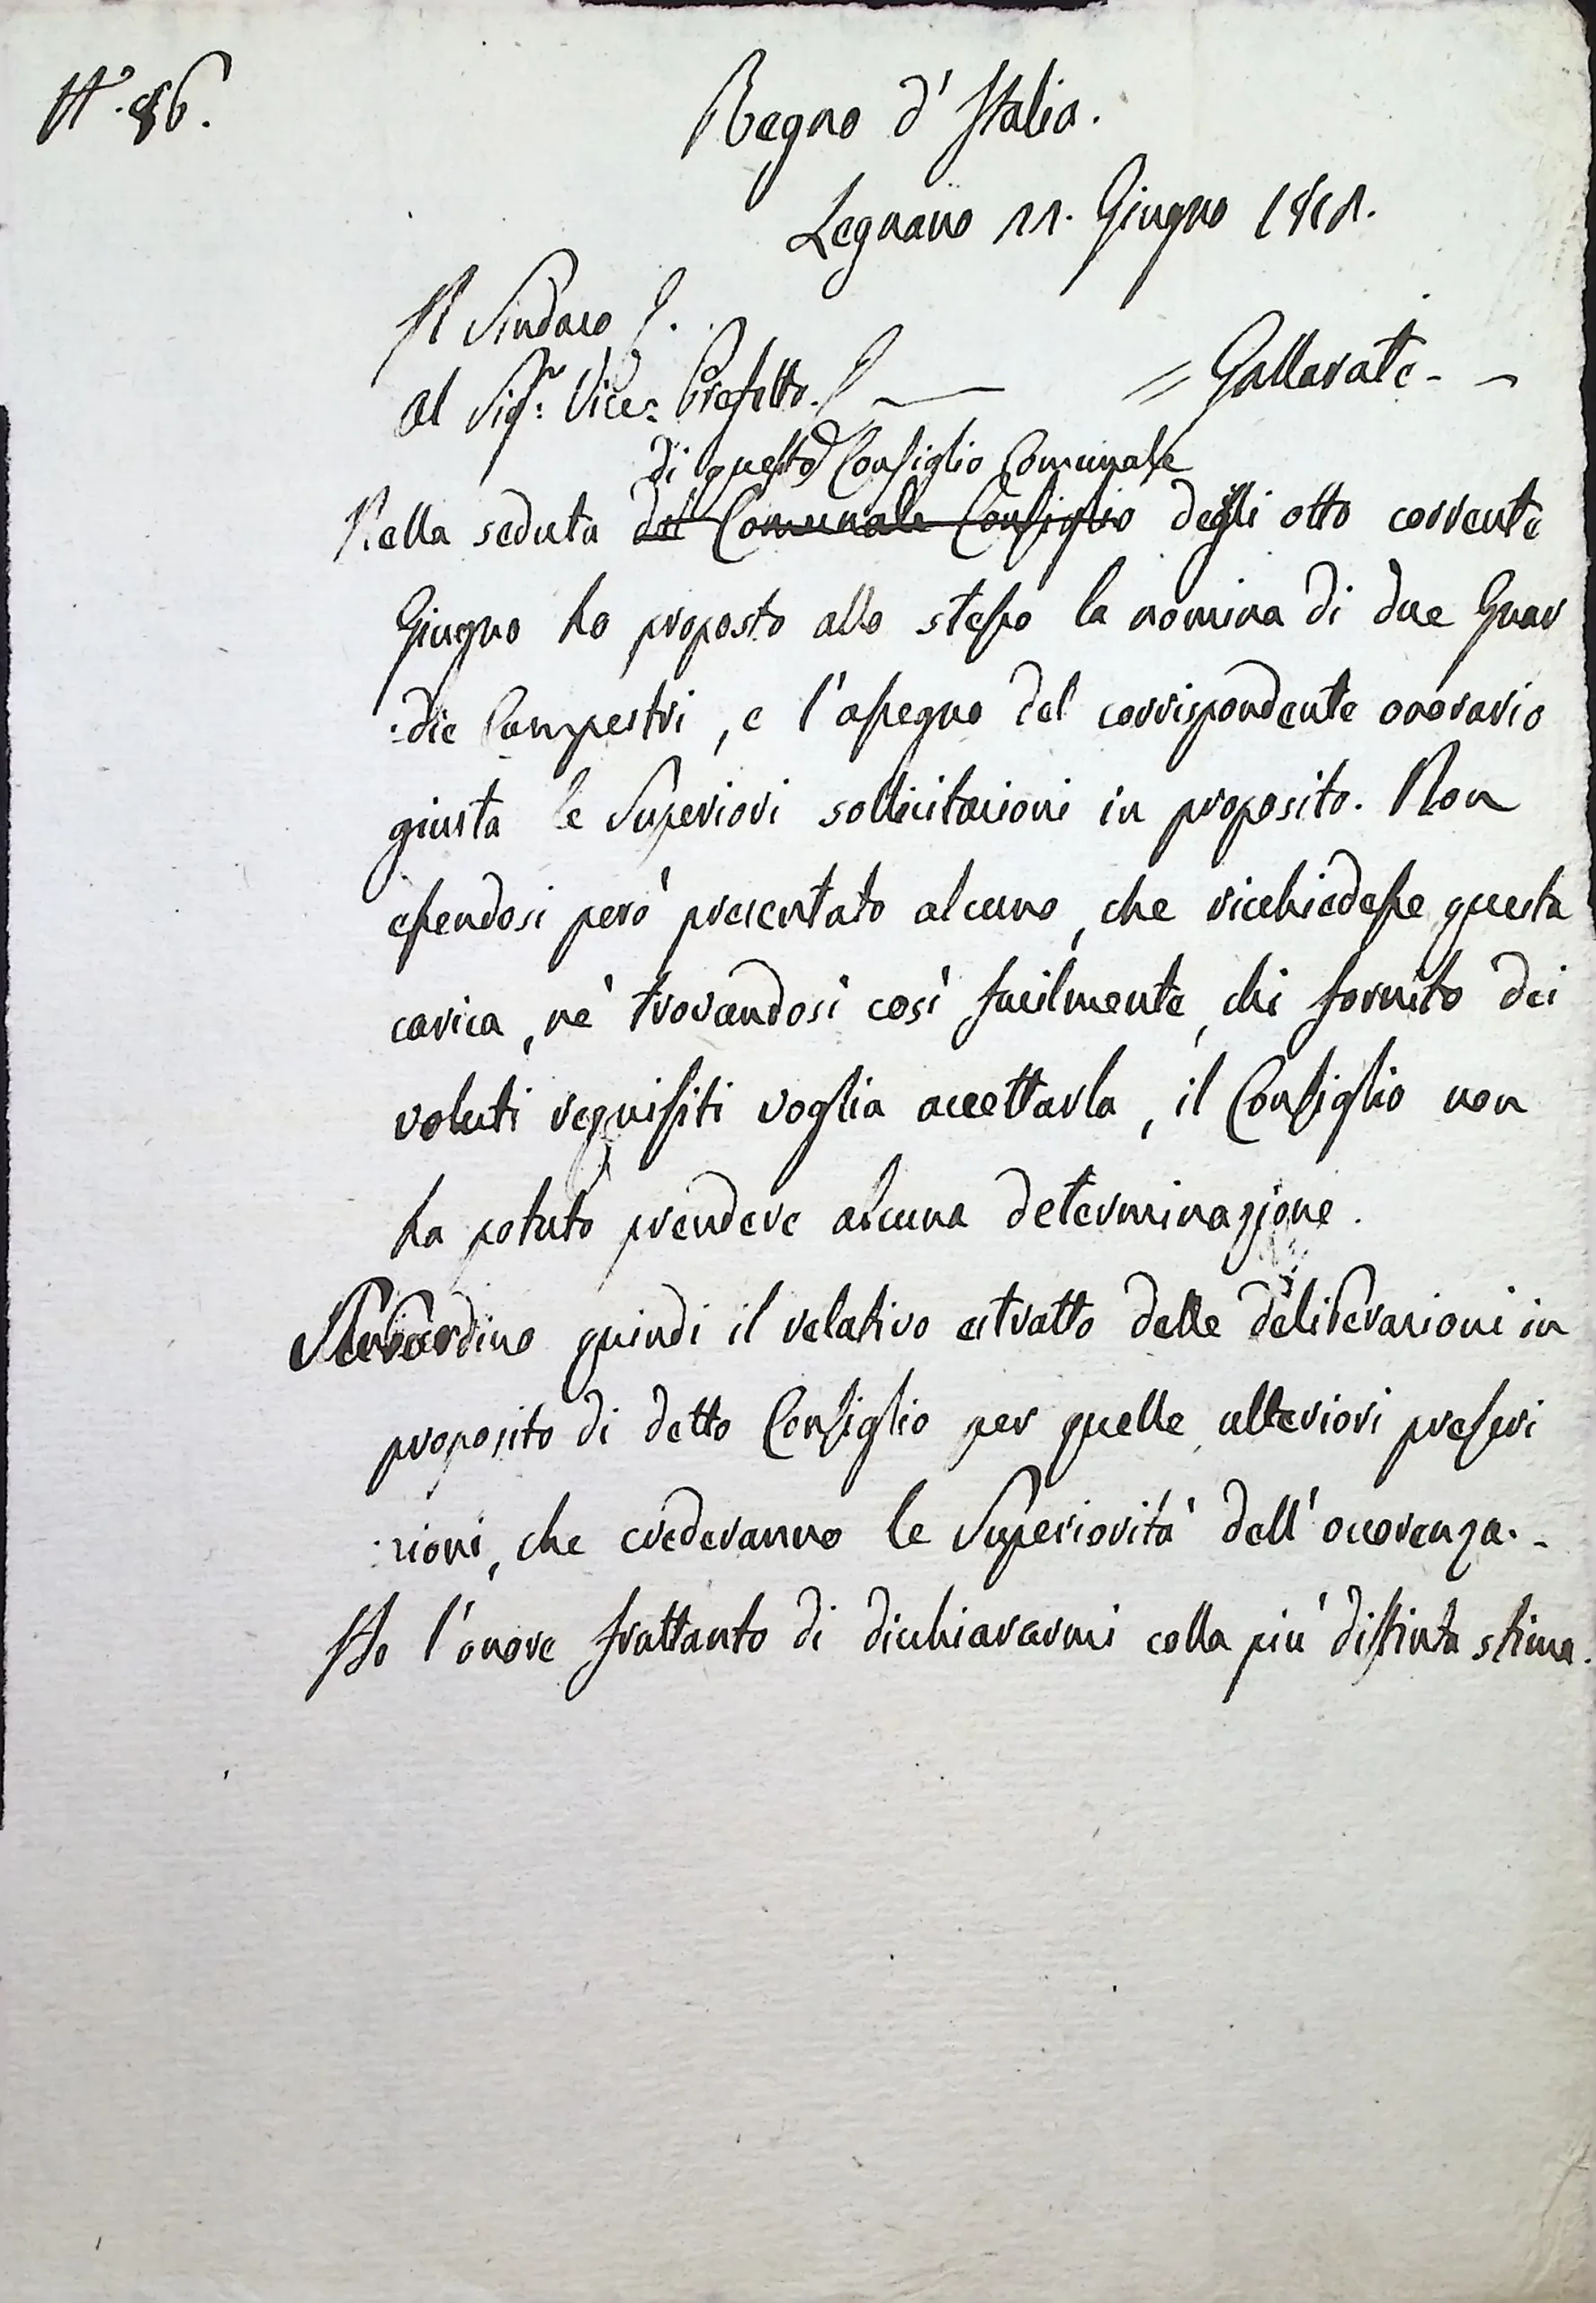 N.º 86.
Regno d'Italia.
Legnano 11. Giugno 1811.
Il Sindaco
al Sig.r Vice= Prefetto. = Gallarate - -
di questo Consiglio Comunale
Nella seduta del Comunale Consiglio degli otto corrente
Giugno ho proposto allo stesso la nomina di due Guar
:die Campestri, e l'assegno del corrispondente onorario
giusta le Superiori sollicitazioni in proposito. Non
essendosi però presentato alcuno, che ricchiedesse questa
carica, nè trovandosi così facilmente, chi fornito dei
voluti requisiti voglia accettarla, il Consiglio non
ha potuto prendere alcuna determinazione.
quindi il relativo estratto delle deliberazioni in
proposito di detto Consiglio per quelle ulteriori prescri
:zioni, che crederanno le Superiorità dell'occorenza. -
Ho l'onore frattanto di dichiararmi colla più distinta stima.